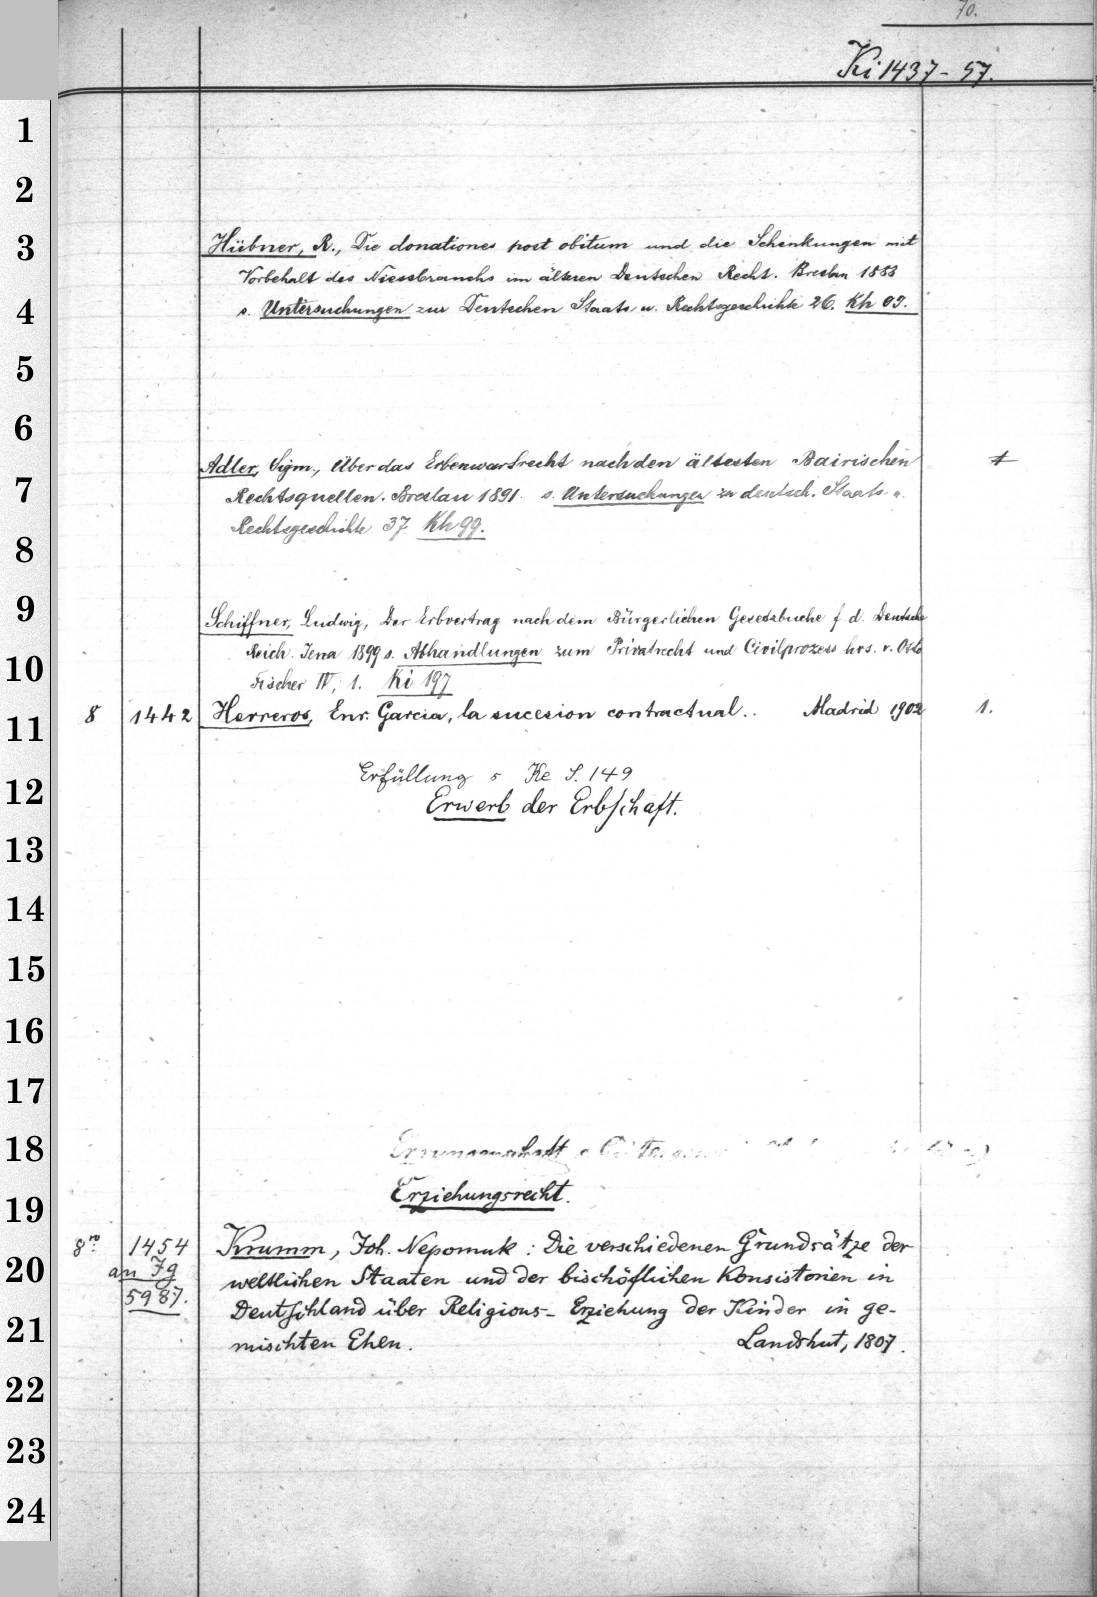 70.
Ki 1437 - 57.
1
2
3
Hübner, R., Die donationes post obitum und die Schenkungen mit
Vorbehalt des Niessbrauchs im älteren Deutschen Recht. Breslau 1888
4
s. Untersuchungen zur Deutschen Staats u. Rechtsgeschichte 26. Kh 99.
5
6
Adler, Sigm., Über das Erbenwartrecht nach den ältesten Bairischen
7
Rechtsquellen. Breslau 1891. s. Untersuchungen zu deutsch. Staats- u.
Rechtsgeschichte 37 Kh 99.
8
9
Schiffner, Ludwig, Der Erbvertrag nach dem Bürgerlichen Gesetzbuche f. d. Deutsche
Reich. Jena 1899 s. Abhandlungen zum Privatrecht und Civilprozess hrs. v. Otto
10
Fischer IV, 1. Ki 197
8 1442 Herreros, Enr. Garcia, la sucesion contractual.. Madrid 1902 1.
11
Erfüllung s Ke S. 149
12
Erwerb der Erbschaft.
13
14
15
16
17
18
Erziehungsrecht.
19
8ro 1454 Krumm, Joh. Nepomuk : Die verschiedenen Grundsätze der
20
an Jg weltlichen Staaten und der bischöflichen Konsistorien in
5987. Deutschland über Religions- Erziehung der Kinder in ge-
21
mischten Ehen. Landshut, 1807.
22
23
24